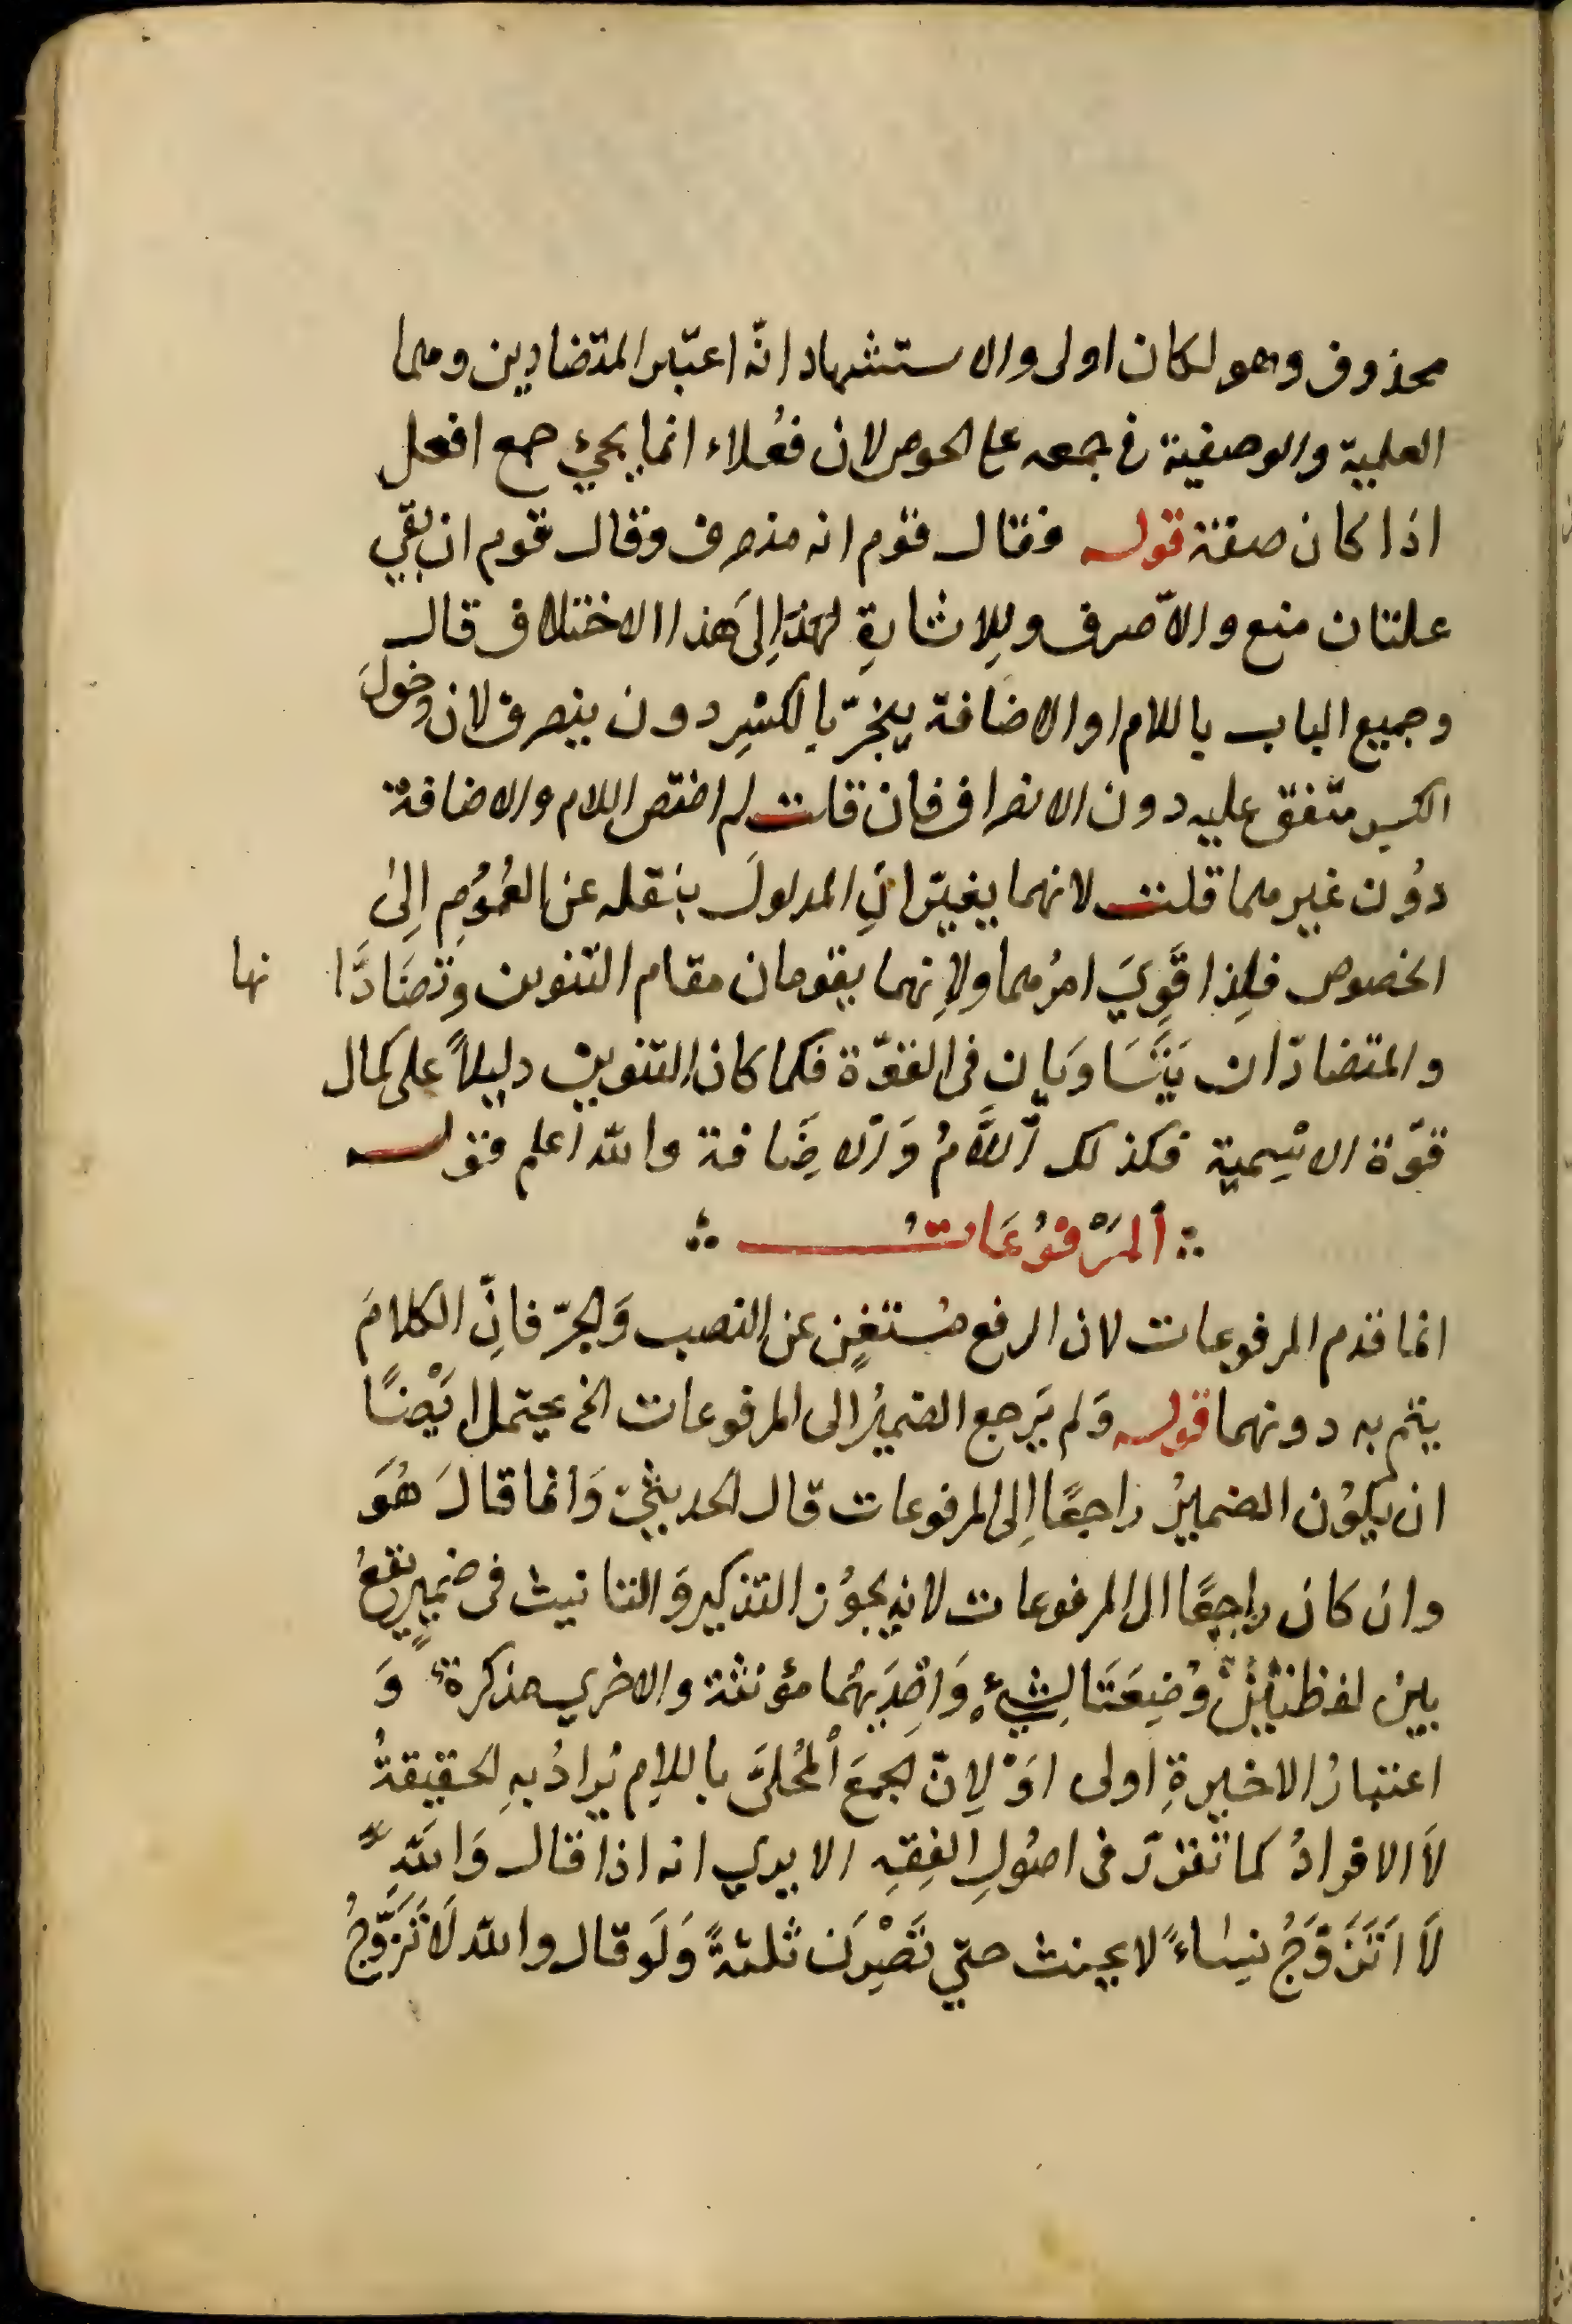 محذوف وهو لكان اولى والاستشهاد انّه اعتبر المتضادين وهما
العلمية والوصفية في جمعه على الحوص لان فُعْلاء انما يجيء جمع افعل
اذا كان صفة قوله فقال قوم انه منصرف وقال قوم ان بقي
علتان منع والّا صرف وللِاشارةِ لهذا اِلىَ هَذا الاختلاف قال
وجميع الباب باللام او الاضافة ينجرّ بالكسْرِ دون ينصرف لان دخولَ
الكسر متّفق عليه دون الانصراف فان قلت لم اختص اللام والاضافة
دوُن غيرهما قلت لانهما يغيّرانِ المدلولَ بنقله عن العُموُمِ اِلىٰ
الخصوص فلِذا قَوِيَ امرُهما ولِانهما يقومان مقام التنوين وتَضَادَّا نها
والمتضادّان يَتَسَاوَيَانِ في القوّة فكما كان التنوين دليلاً على كمال
قوّة الاسْمِية فكذلك اَللَّامُ وَالاضَافة والله اعلم قوله
اَلمَرْفوُعَاتُ
انما قدم المرفوعات لان الرفع مُستغنٍ عن النصب وَالجرّ فانِّ الكلامَ
يتم به دونهما قوله وَلم يَرجع الضميرُ الى المرفوعات الخ يحتمل اَيْضًا
ان يكوُن الضميرُ راجعًا اِلى المرفوعات قال الحديثيّ وَانما قالَ هُوَ
وان كان راجعًا الى المرفوعات لانه يجوُز التذكير وَالتانيث في ضميرٍ يقعُ
بين لفظتيْنْ وُضِعَتَا لِشيءٍ وَاحِدَيهُما مؤنثة والاخري مذكرةٌ وَ
اعتبارُ الاخيرةِ اولى اَوْ لِانّ الجمعَ اَلمُحلىَّ باللامِ يُرادُ بهِ الحقيقةُ
لاَ الافرادُ كما تقرّر في اصُولِ الفِقهِ الا يري انه اذا قال وَاللهِ
لَا اَتَزَوَّجُ نِسَاءً لا يحنث حتي تَصِيْرَن ثلثةً وَلَو قال والله لَا تَزَوَّجُ